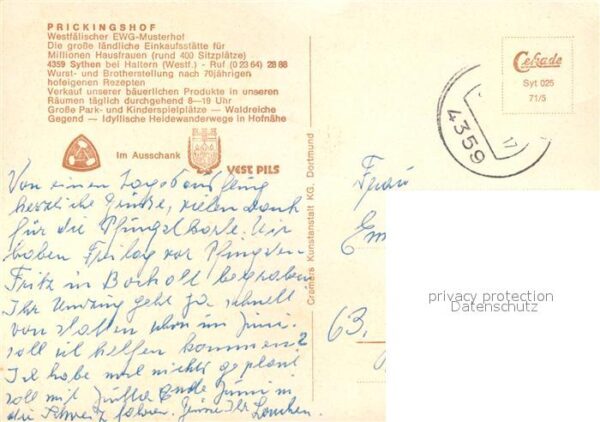 PRICKINGSHOF
Westfälischer EWG-Musterhof
Die große ländliche Einkaufsstätte für
Millionen Hausfrauen (rund 400 Sitzplätze)
4359 Sythen bei Haltern (Westf.) - Ruf (0 23 64) 28 88
Wurst- und Brotherstellung nach 70jährigen
hofeigenen Rezepten
Verkauf unserer bäuerlichen Produkte in unseren
Räumen täglich durchgehend 8—19 Uhr
Große Park- und Kinderspielplätze — Waldreiche
Gegend — Idyllische Heidewanderwege in Hofnähe
Im Ausschank
VEST PILS
Von einem Tagesausflug
herzliche Grüße, vielen Dank
für die Pfingstkarte. Wir
haben Freitag vor Pfingsten
Fritz in Bocholt begraben.
Ihr Umzug geht ja schnell
von statten schon im Juni.
soll ich helfen kommen?
Ich habe mal nichts geplant
soll mit Ende Juni in
die Schweiz fahren. Ihr
Cramers Kunstanstalt KG. Dortmund
Cekade
Syt 025
71/5
4359
17
Frau
Em
63.
privacy protection
Datenschutz